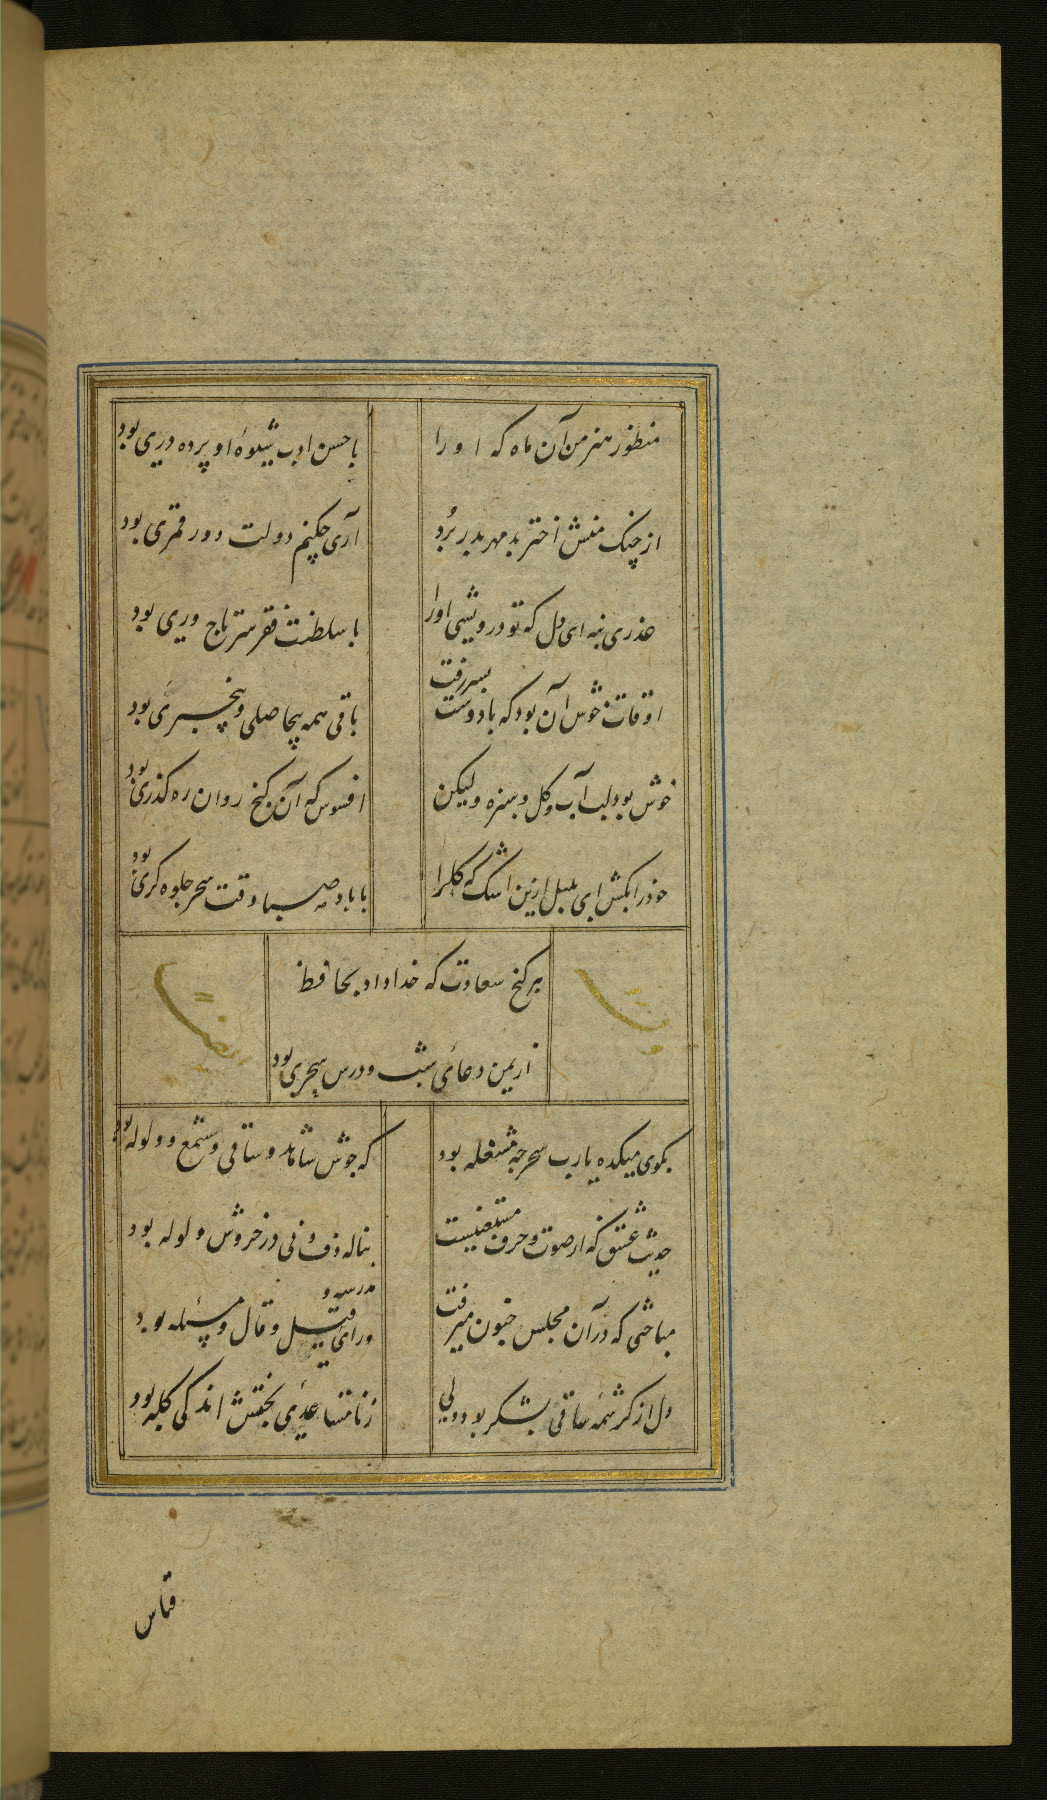 منظور هنرمن آن ماه که او را
با حسن ادب شیوهٔ او پرده دری بود
از چنک منش اختر بد مهر بدر برد
آری چکنم دولت دور قمری بود
عذری بنه ای دل که تو درویشی اورا
با سلطنت فقر سر تاج وری بود
اوقات خوش آن بود که با دوست بسر رفت
باقی همه بیحاصلی و بیخبری بود
خوش بود لب آب و کل و سبزه ولیکن
افسوس که آن کنج روان ره کذری بود
خود را بکش ای بلبل ازین اشک که کل را
با باد صبا وقت سحر جلوه کری بود
هر کنج سعادت که خدا داد بحافظ
از یمن دعای شب و درس سحری بود
بکوی میکده یارب سحر چه مشغله بود
که جوش شاهد و ساقی و شمع و ولوله بود
حدیث عشق که از صوت و حرف مستغنیست
بناله دف و نی در خروش ولوله بود
مباحثی که در آن مجلس جنون میرفت
ورای مدرسه و قیل و قال و مسئله بود
دل از کرشمه ساقی بشکر بود ولی
ز نامساعدی بختش اندکی کله بود
قیاس